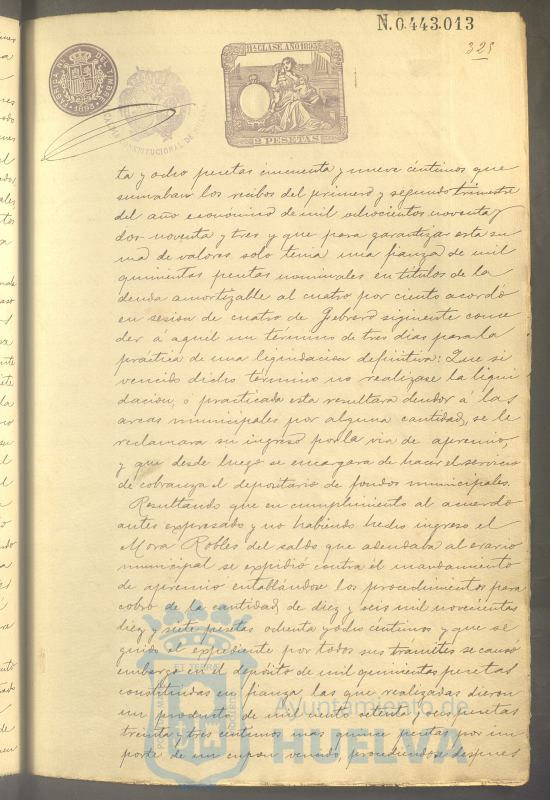 N.0.443.013
323
11ª CLASE AÑO 1893
2 PESETAS
FABRICA DEL TIMBRE
1893
CONSTITUCIONAL DE
ta y ocho pesetas cincuenta y nueve céntimos que
sumaban los recibos del primero y segundo trimestre
del año economico de mil ochocientos noventa y
dos noventa y tres y que para garantizar esta su
ma de valores solo tenia una fianza de mil
quinientas pesetas nominales en titulos de la
deuda amortizable al cuatro por ciento acordó
en sesion de cuatro de Febrero siguiente conce
der á aquel un término de tres dias para la
práctica de una liquidacion definitiva: Que si
vencido dicho término no realizase la liqui
dacion, ó practicada esta resultara deudor á las
arcas municipales por alguna cantidad, se le
reclamara su ingreso por la via de apremio,
y que desde luego se encargara de hacer el servicio
de cobranza el depositario de fondos municipales.
Resultando que en cumplimiento al acuerdo
antes expresado y no habiendo hecho ingreso el
Mora Robles del saldo que adeudaba al erario
municipal se expidió contra él mandamiento
de apremio entablándose los procedimientos para
cobro de la cantidad de diez y seis mil novecientas
diez y siete pesetas ochenta y ocho céntimos y que se
guido el expediente por todos sus tramites se causó
embargo en el depósito de mil quinientas pesetas
constituidas en fianza, las que realizadas dieron
un producto de mil ciento setenta y seis pesetas
treinta y tres centimos mas quince pesetas por im
porte de un cupon vencido, procediendose despues
Ayuntamiento de
HUELVA